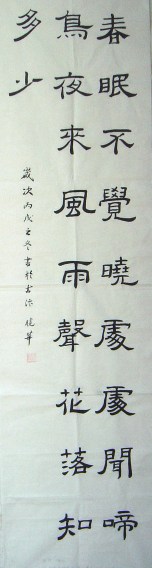 春眠不覺曉處處聞啼
鳥夜來風雨聲花落知
多少
歲次丙戌之冬書於